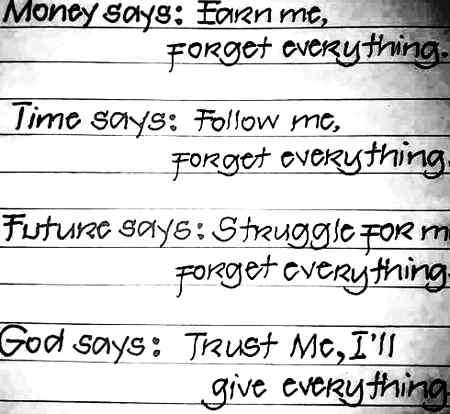 Money says: Earn me,
forget everything.
Time says: Follow me,
forget everything.
Future says: Struggle for m
forget everything.
God says: Trust Me, I'll
give everything